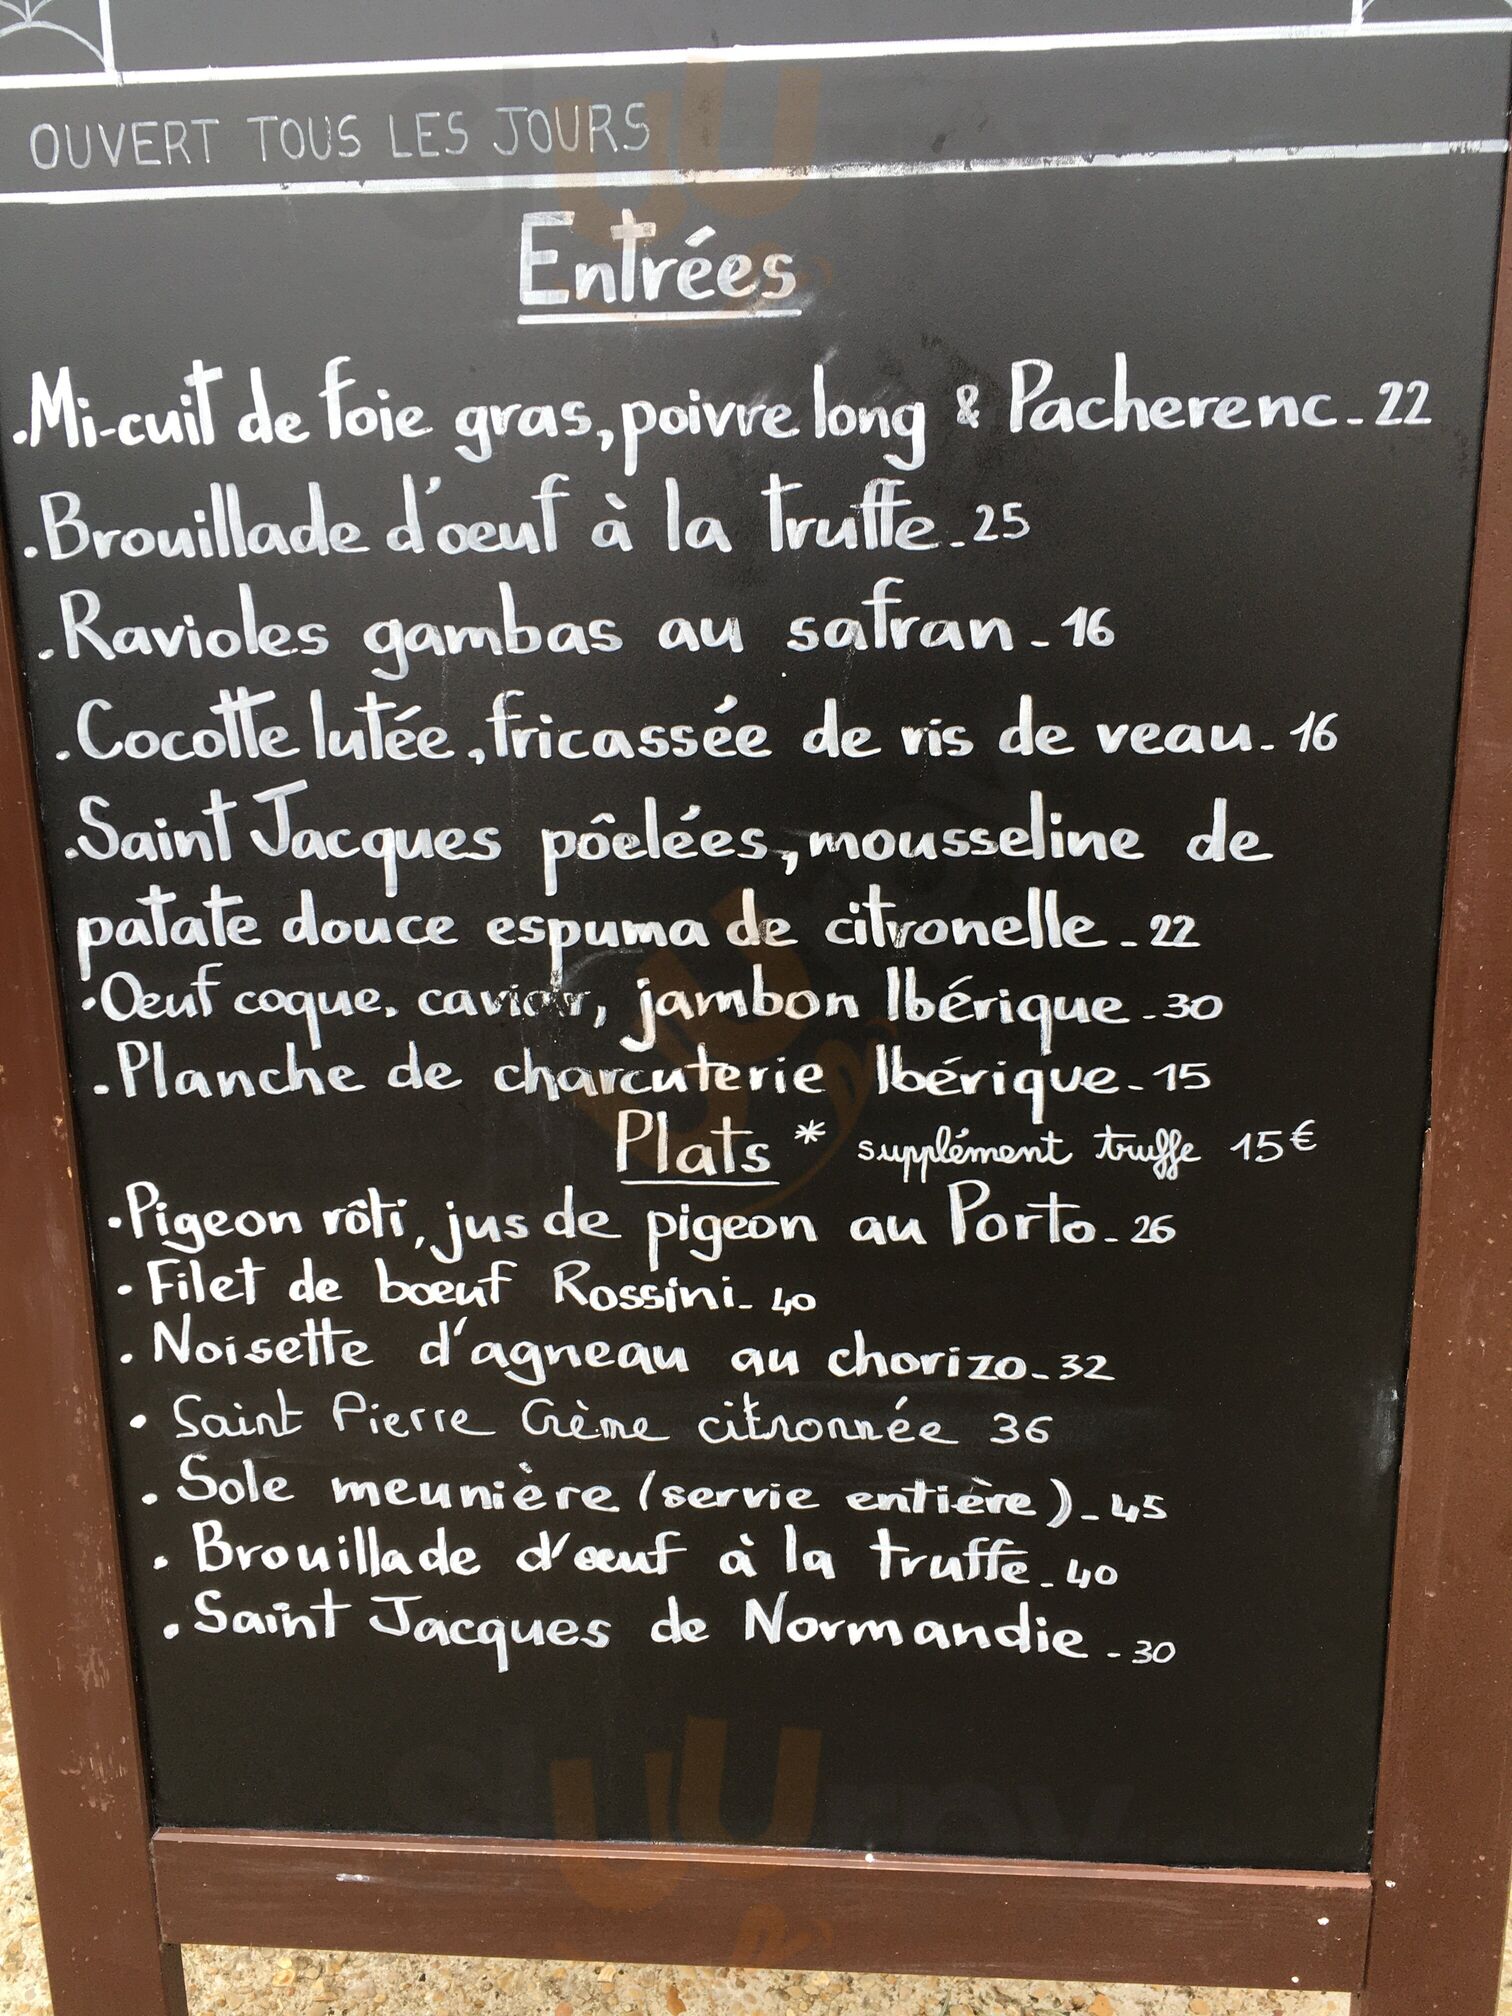 OUVERT TOUS LES JOURS
Entrées
.Mi-cuit de foie gras, poivre long & Pacherenc_22
.Brouillade d'œuf à la truffe_25
.Ravioles gambas au safran_16
.Cocotte lutée, fricassée de ris de veau_16
.Saint Jacques pôelées, mousseline de
patate douce espuma de citronelle_22
.Oeuf coque, caviar, jambon Ibérique_30
.Planche de charcuterie Ibérique_15
Plats * supplément truffe 15€
.Pigeon rôti, jus de pigeon au Porto_26
.Filet de bœuf Rossini_40
.Noisette d'agneau au chorizo_32
. Saint Pierre Crème citronnée 36
. Sole meunière (servie entière)_45
. Brouillade d'œuf à la truffe_40
. Saint Jacques de Normandie_30